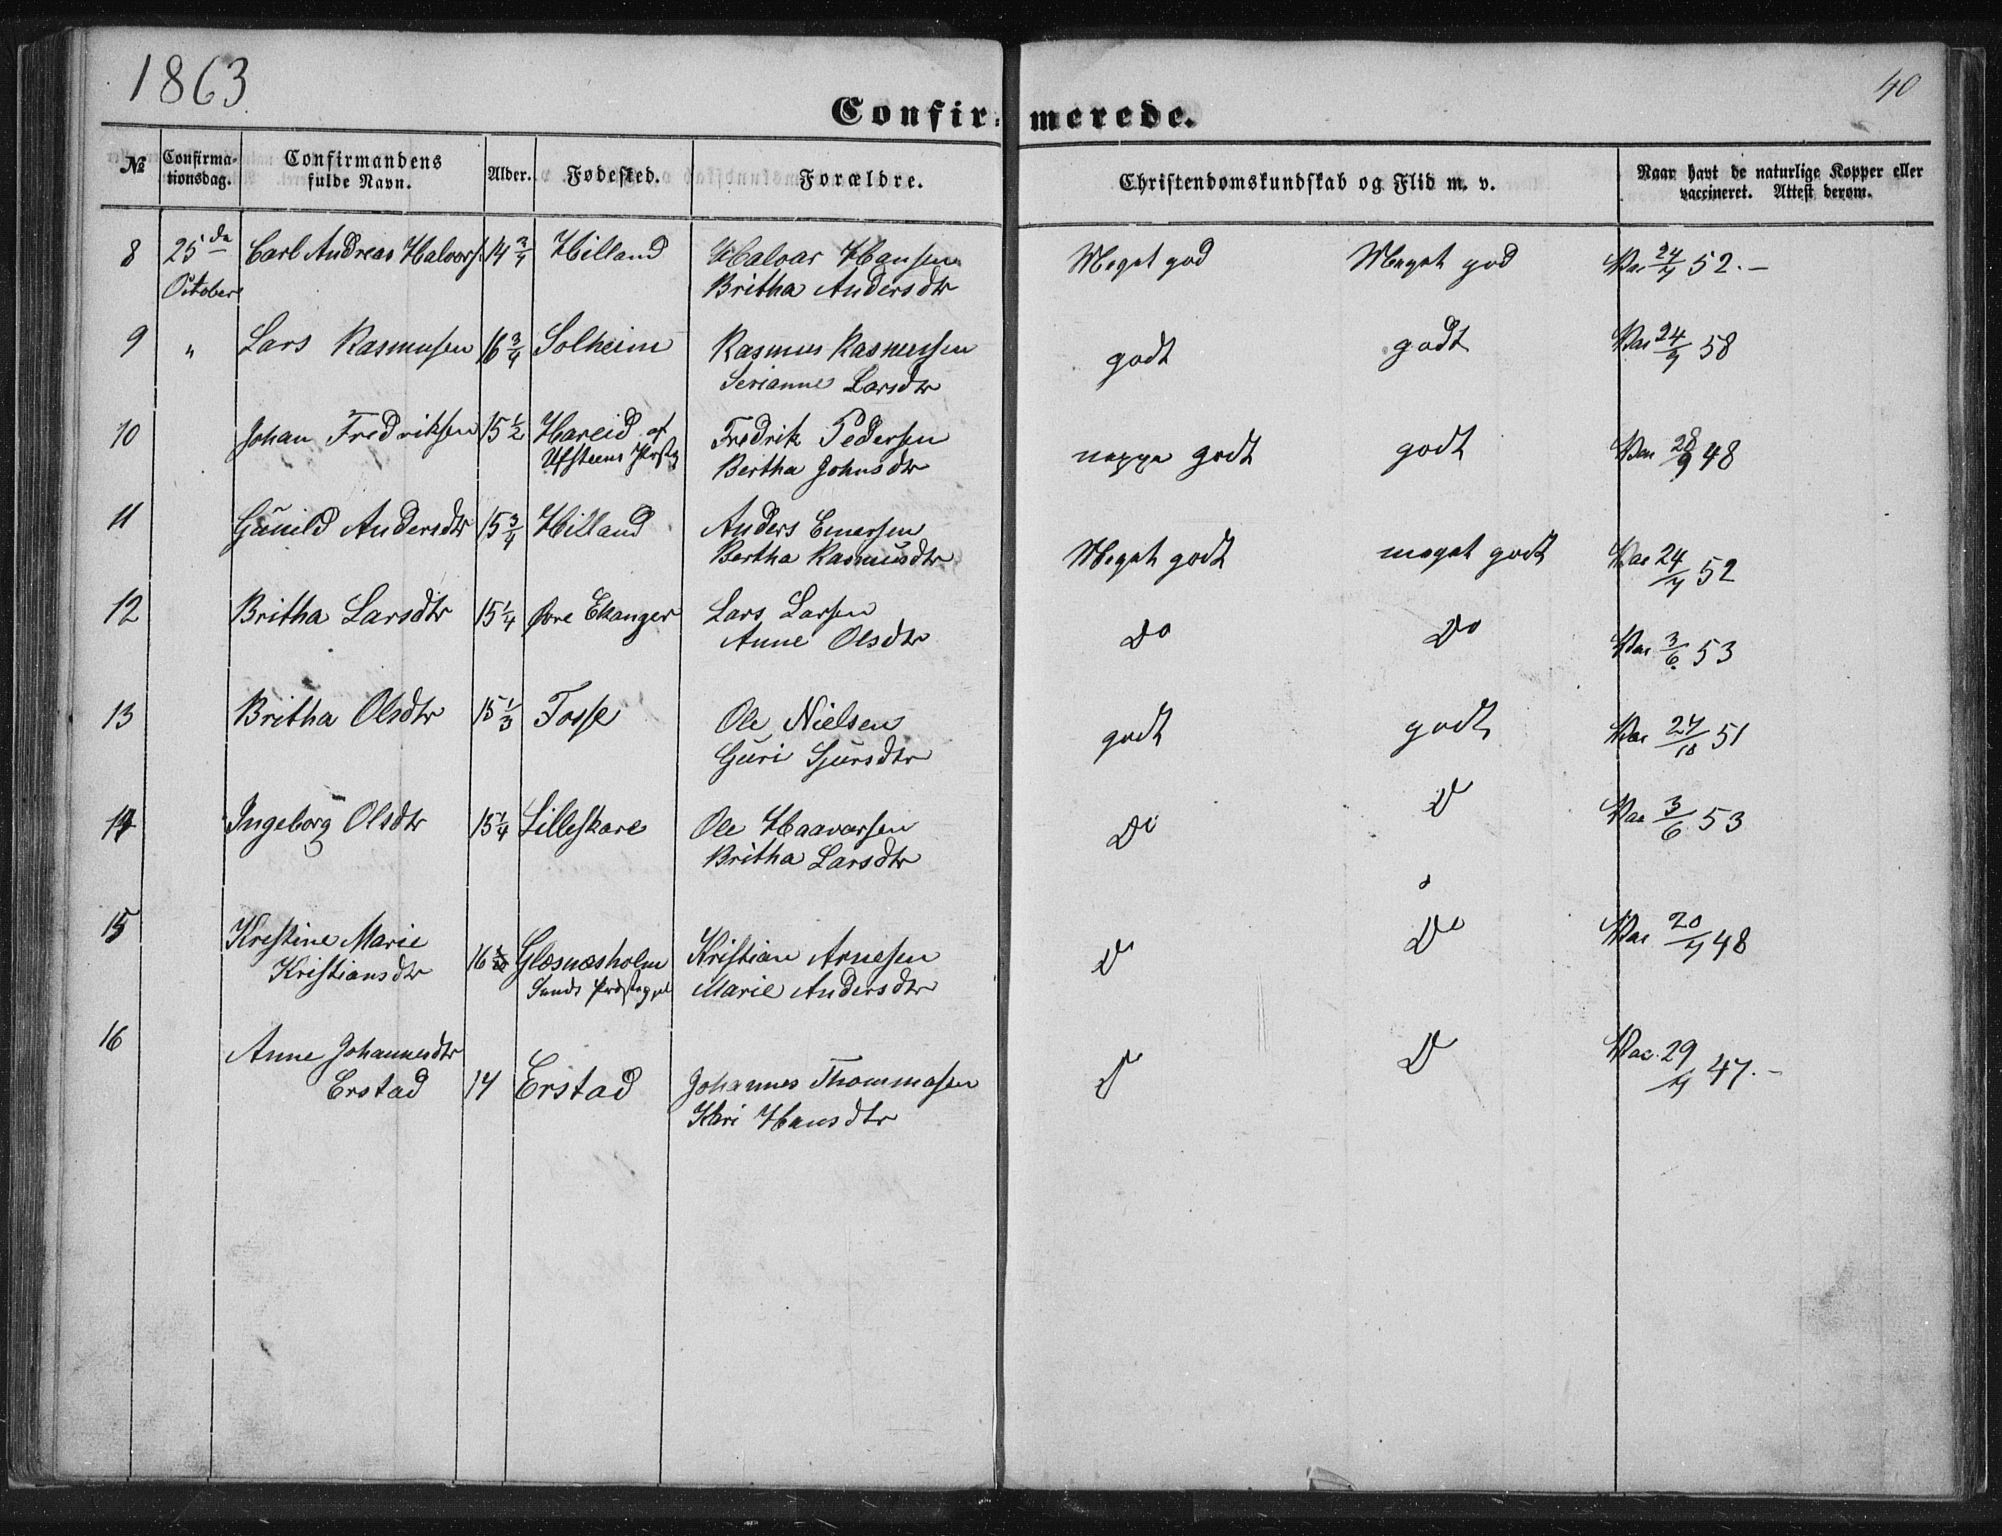 1863
40
Confirmerede.
№ Confirmationsdag. Confirmandens fulde Navn. Alder. Fødested. Forældre. Christendomskundskab og Flid m. v. Naar havt de naturlige Kopper eller vaccineret. Attest derom.
8 25de Carl Andreas Halvors. 14 3/4 Hilland Halvar Hansen Meget god Meget god Vac 24/7 52.-
October Britha Andersdtr
9 " Lars Rasmusen 16 3/4 Solheim Rasmus Rasmussen godt godt Vac 24/7 58
Serianne Larsdtr
10 Johan Fredriksen 15 1/2 Hareid af Fredrik Pedersen neppe godt godt Vac 28/9 48
Ulfsteens Prstg Bertha Johnsdtr
11 Gunild Andersdtr 15 3/4 Hilland Anders Emersen Meget godt meget godt Vac 24/7 52
Bertha Rasmusdtr
12 Britha Larsdtr 15 1/4 Øvre Ekanger Lars Larsen Do Do Vac 3/6 53
Anne Olsdtr
13 Britha Olsdtr 15 1/3 Fosse Ole Nielsen godt godt Vac 27/10 51
Guri Sjursdtr
14 Ingeborg Olsdtr 15 1/4 Lilleskare Ole Haavarsen Do D Vac 3/6 53
Britha Larsdtr
15 Krestine Marie Kristian Arnesen D Do Vac 20/7 48
Kristiansdtr 16 Glæsnæsholm Marie Andersdtr
Sunds
16 Anne Johannesdtr D D Vac. 29/7 47.-
Erstad 14 Erstad Johannes Thommasen
Kari Hansdtr